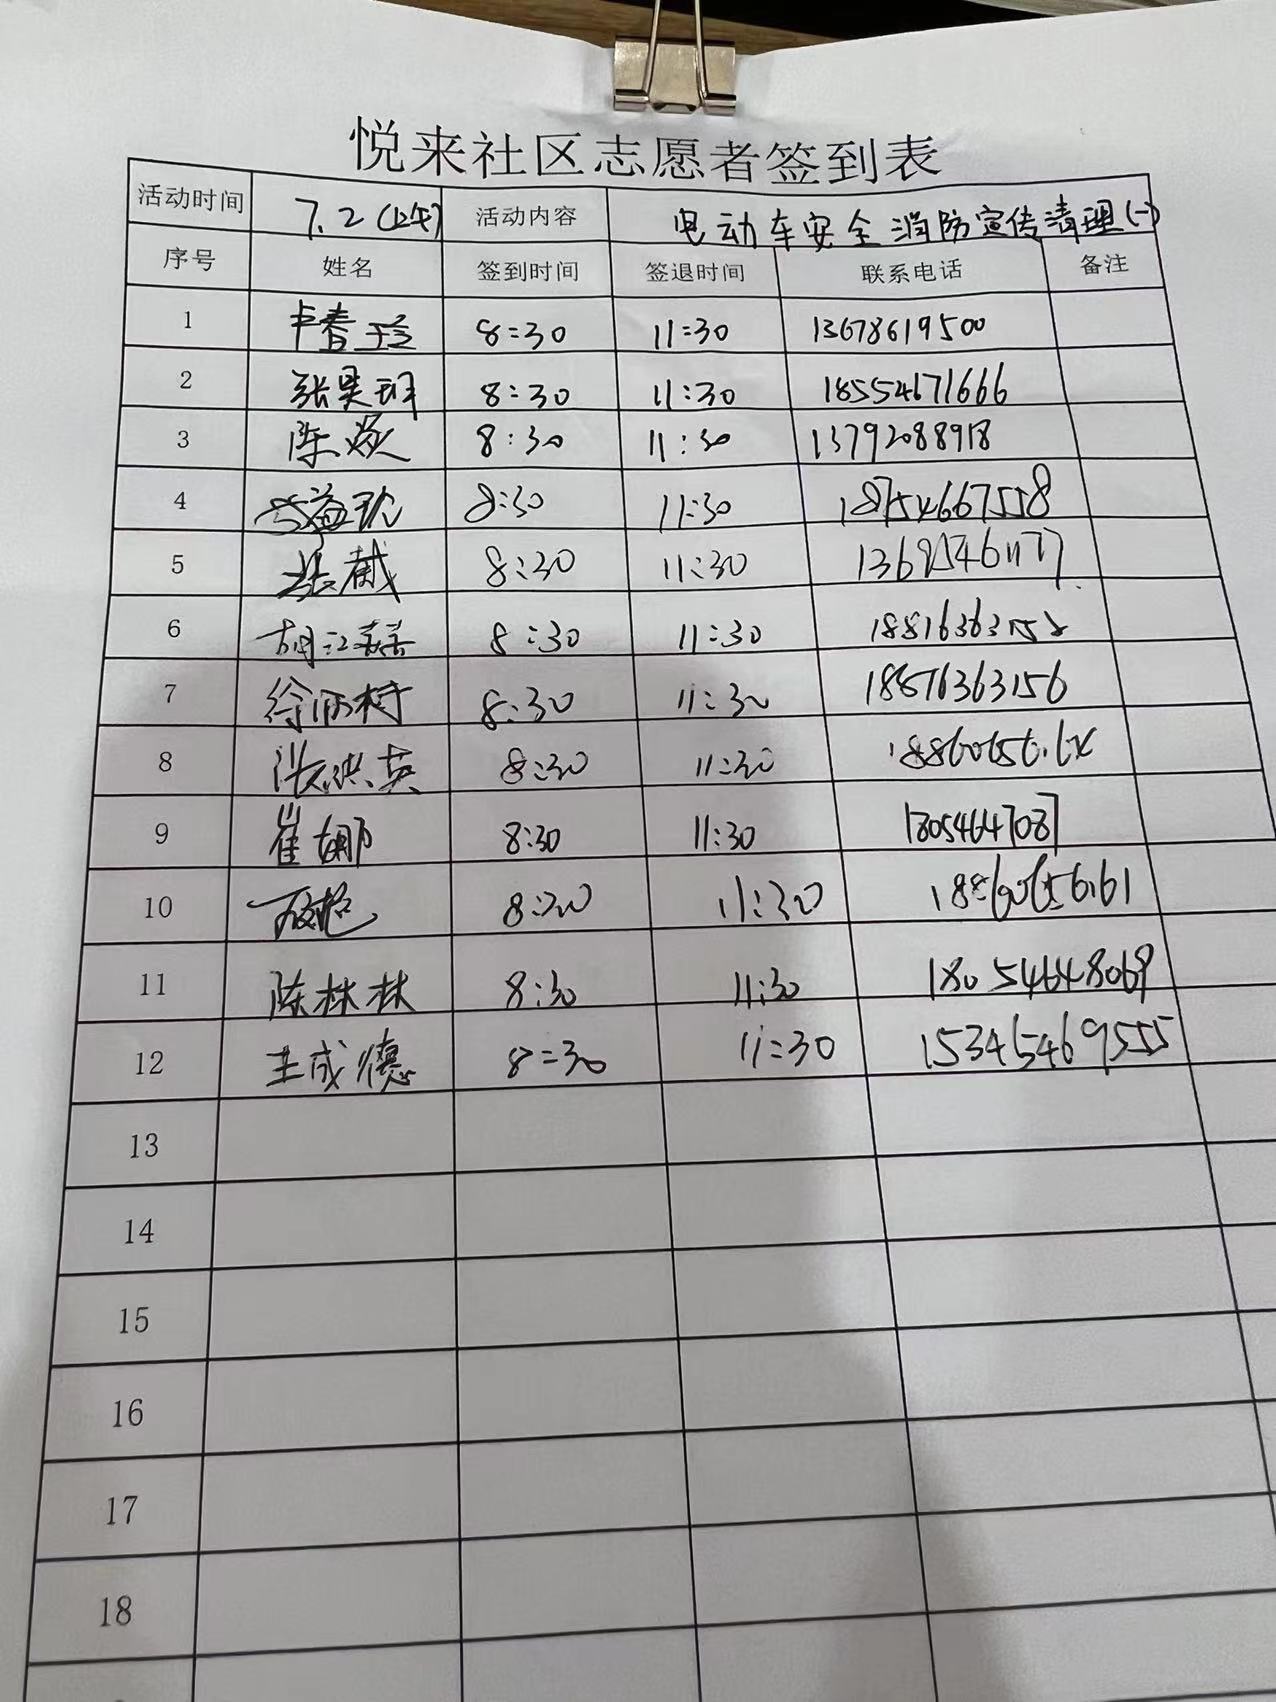 悦来社区志愿者签到表
活动时间 7.2(上午) 活动内容 电动车安全消防宣传清理(一)
序号 姓名 签到时间 签退时间 联系电话 备注
1 卢春玲 8:30 11:30 13678619500
2 张昊翔 8:30 11:30 18554671666
3 陈焱 8:30 11:30 13792088918
4 8:30 11:30 18754667558
5 张 8:30 11:30
6 胡江 8:30 11:30
7 徐炳树 8:30 11:30 18816363156
8 张洪英 8:30 11:30
9 崔娜 8:30 11:30
10 8:30 11:30
11 陈林林 8:30 11:30 18054648069
12 王成德 8:30 11:30 15345469555
13
14
15
16
17
18